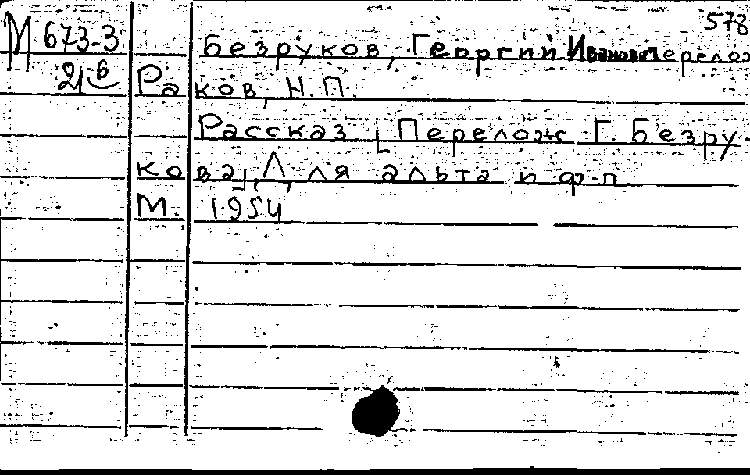 578
М 673-3 Безруков, Георгий Иванович перелож
21 б Раков, Н.П.
Рассказ [Перелож. Г. Безру-
кова], Для альта и ф-п
М. 1954